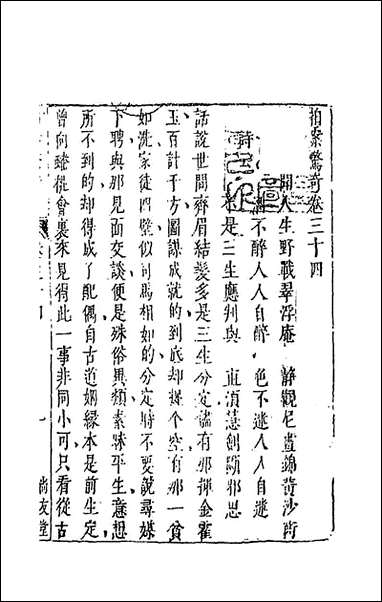 拍案驚奇卷三十四
聞人生野戰翠浮庵　靜觀尼晝錦黃沙衖
詩
不醉人人自醉　色不迷人人自迷
是三生應判與　直須慧劍斷邪思
話說世間齊眉結髮多是三生分定儘有那揮金霍
玉百計千方圖謀成就的到底却捉个空有那一貧
如洗家徒四壁似司馬相如的分定時不要說尋媒
下聘與那見面交談便是殊俗異類素昧平生意想
所不到的却得成了配偶自古道姻緣本是前生定
曾向蟠桃會裏來見得此一事非同小可只看從古
尚友堂